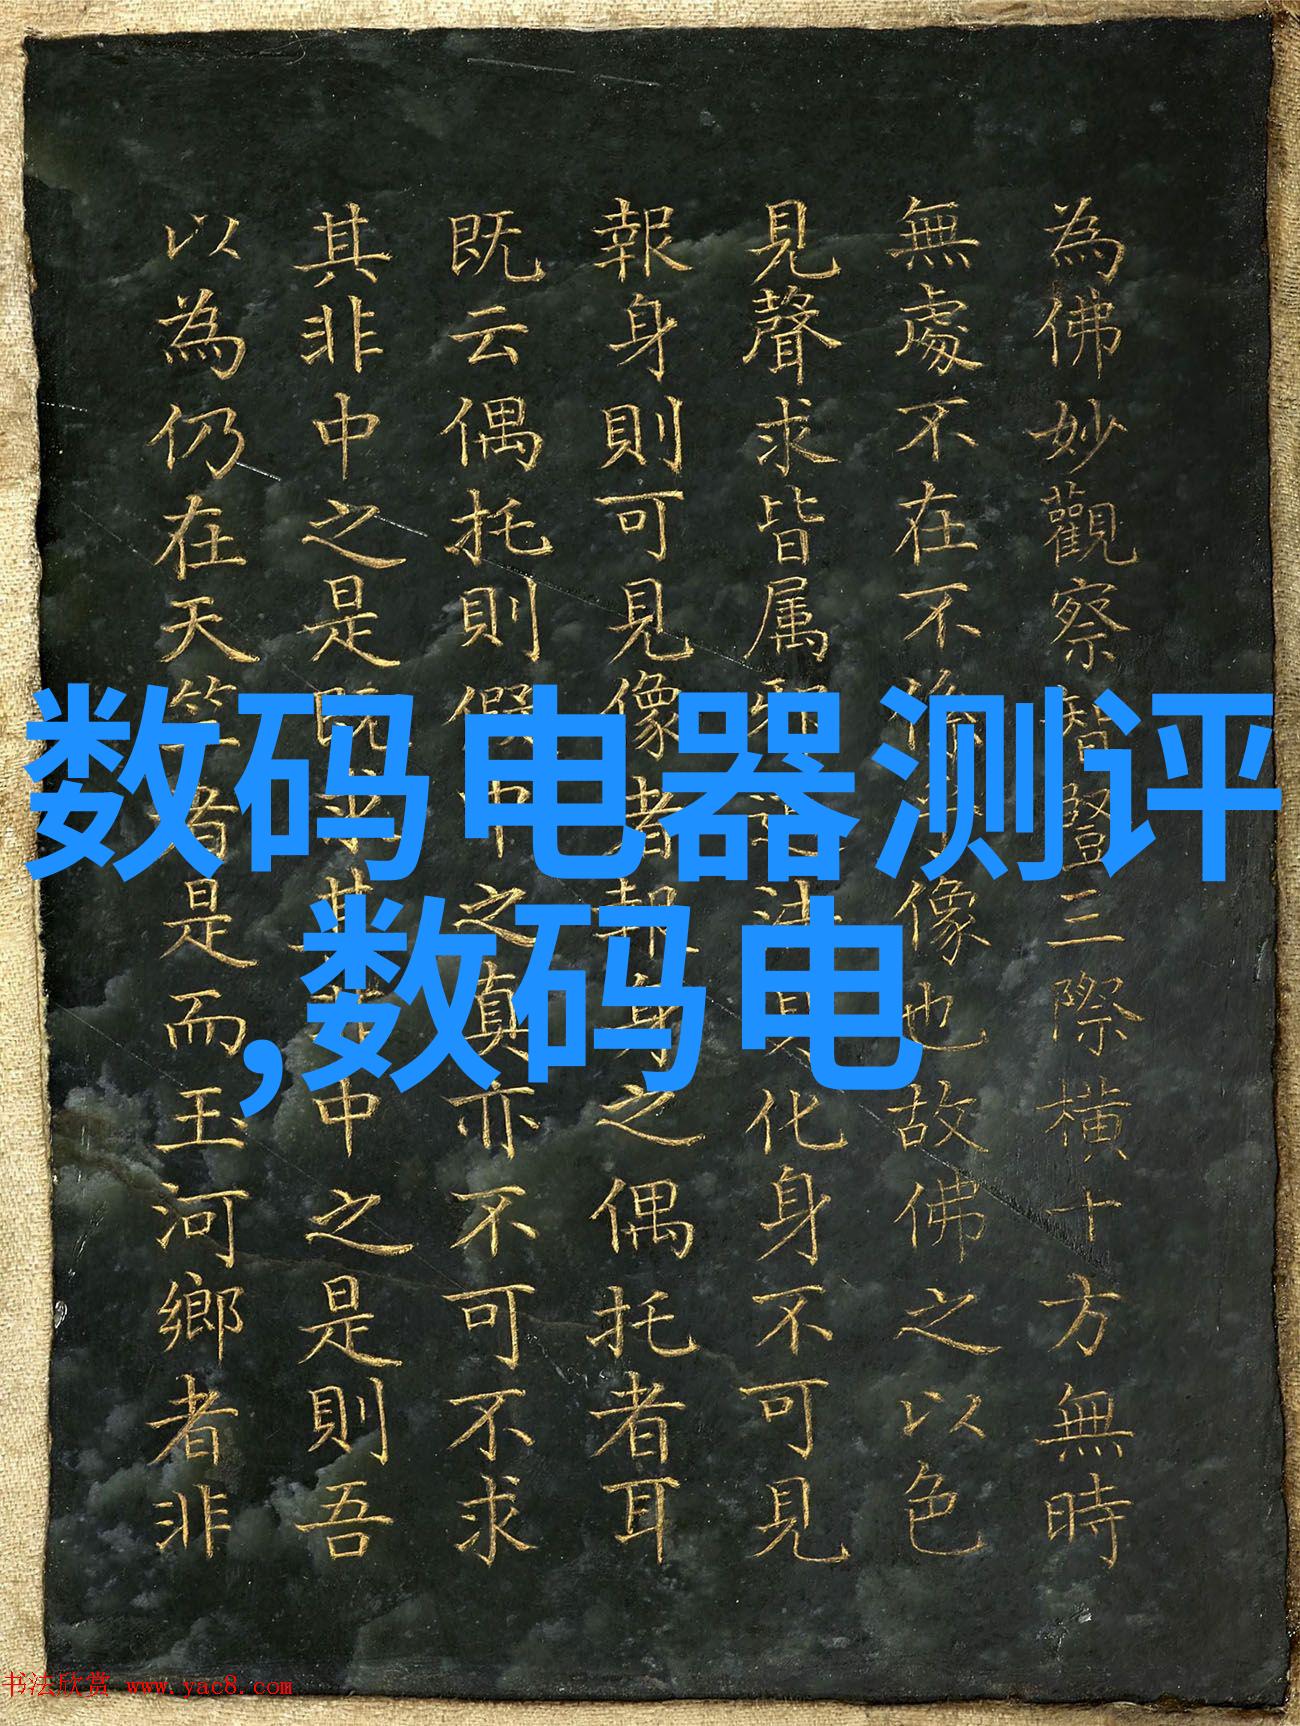 為佛妙觀察智豎三際橫十方無時
無處不在不像也故佛之以色
見聲求皆属邪法化身不可見
報身則可見像者報身之偶托者耳
既云偶托則假中之真亦不可不求
其非中之是既求其非中之是則吾
以為仍在天竺者是而玉河鄉者非
数码电器测评
,数码电
书法欣赏 www.yac8.com